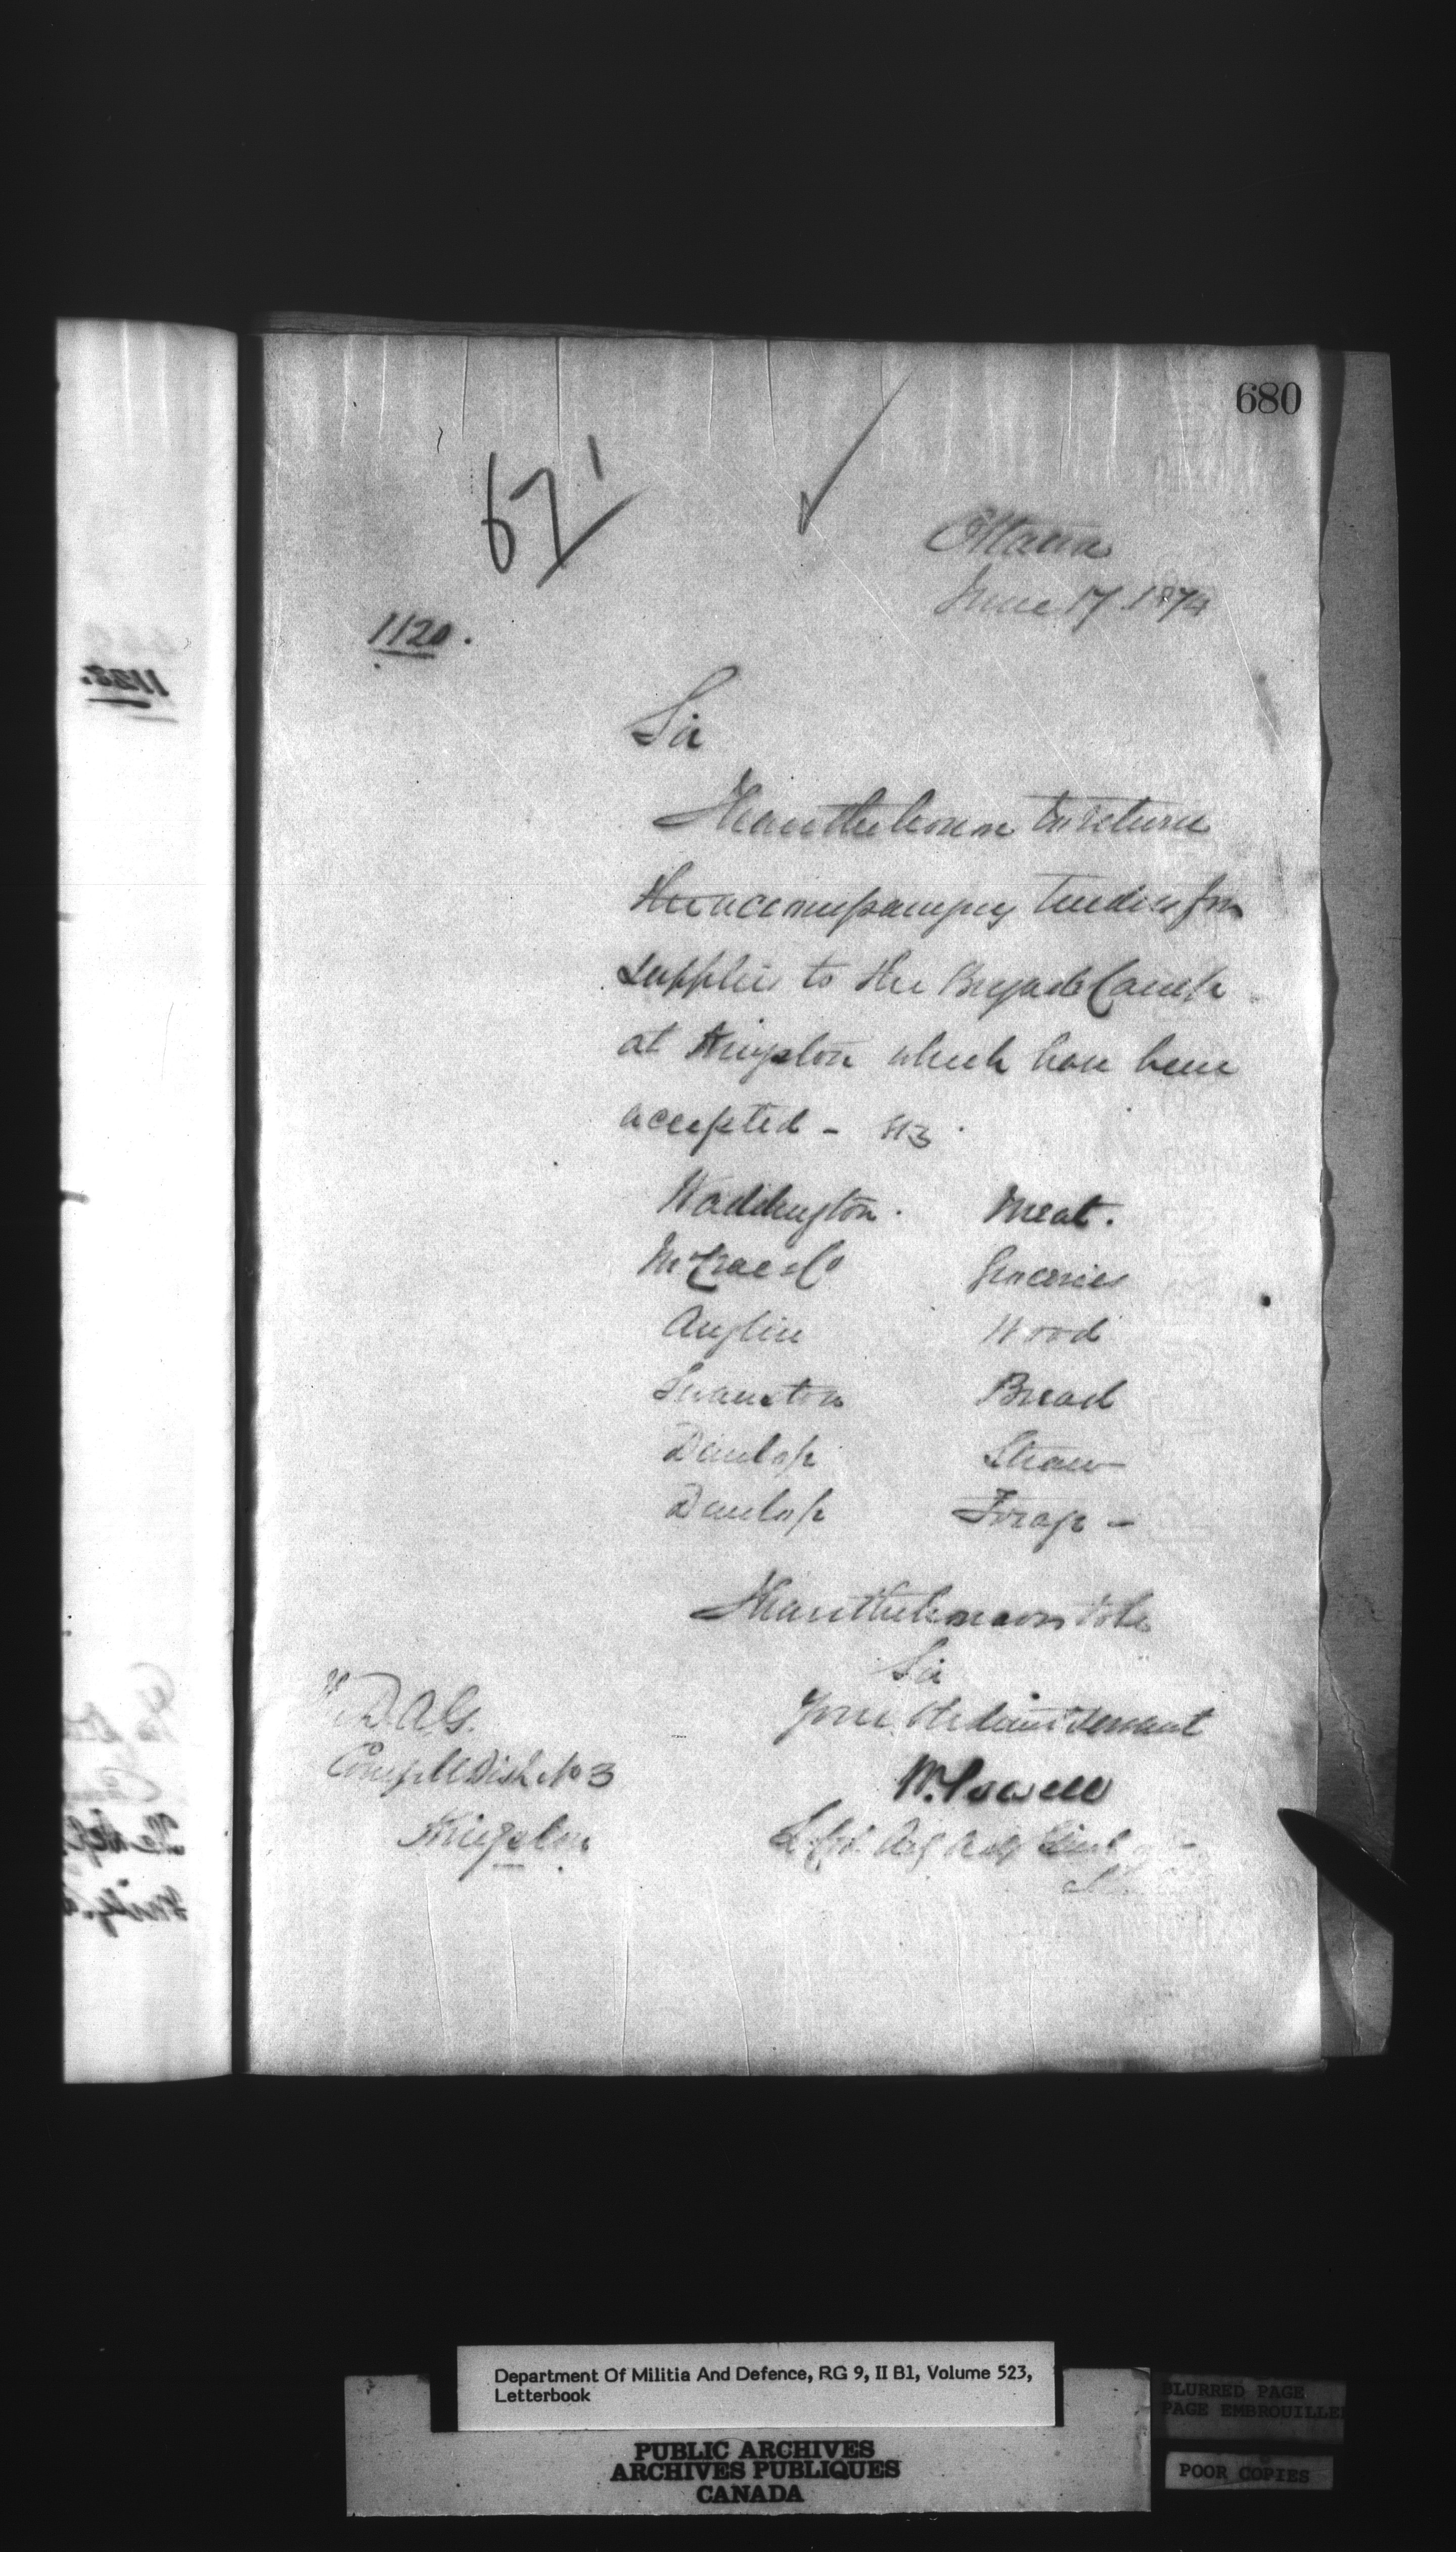 680
671
Ottawa
June 17. 1874
1120.
Sir
I have the honor to return
the accompanying tenders for
supplies to the Brigade Camp
at Kingston which have been
accepted - viz.
Waddington. Meat.
McCrae & Co Groceries
Anglin Wood
Swanston Bread
Dunlop Straw
Dunlop Forage -
I have the honor to be
Sir
Your Obedient Servant
W. Powell
Lt Col. Actg Adjt Genl
The D.A.G.
Comg Mil Dist No 3
Kingston
1122.
Department Of Militia And Defence, RG 9, II B1, Volume 523,
Letterbook
PUBLIC ARCHIVES
ARCHIVES PUBLIQUES
CANADA
BLURRED PAGE
PAGE EMBROUILLEE
POOR COPIES